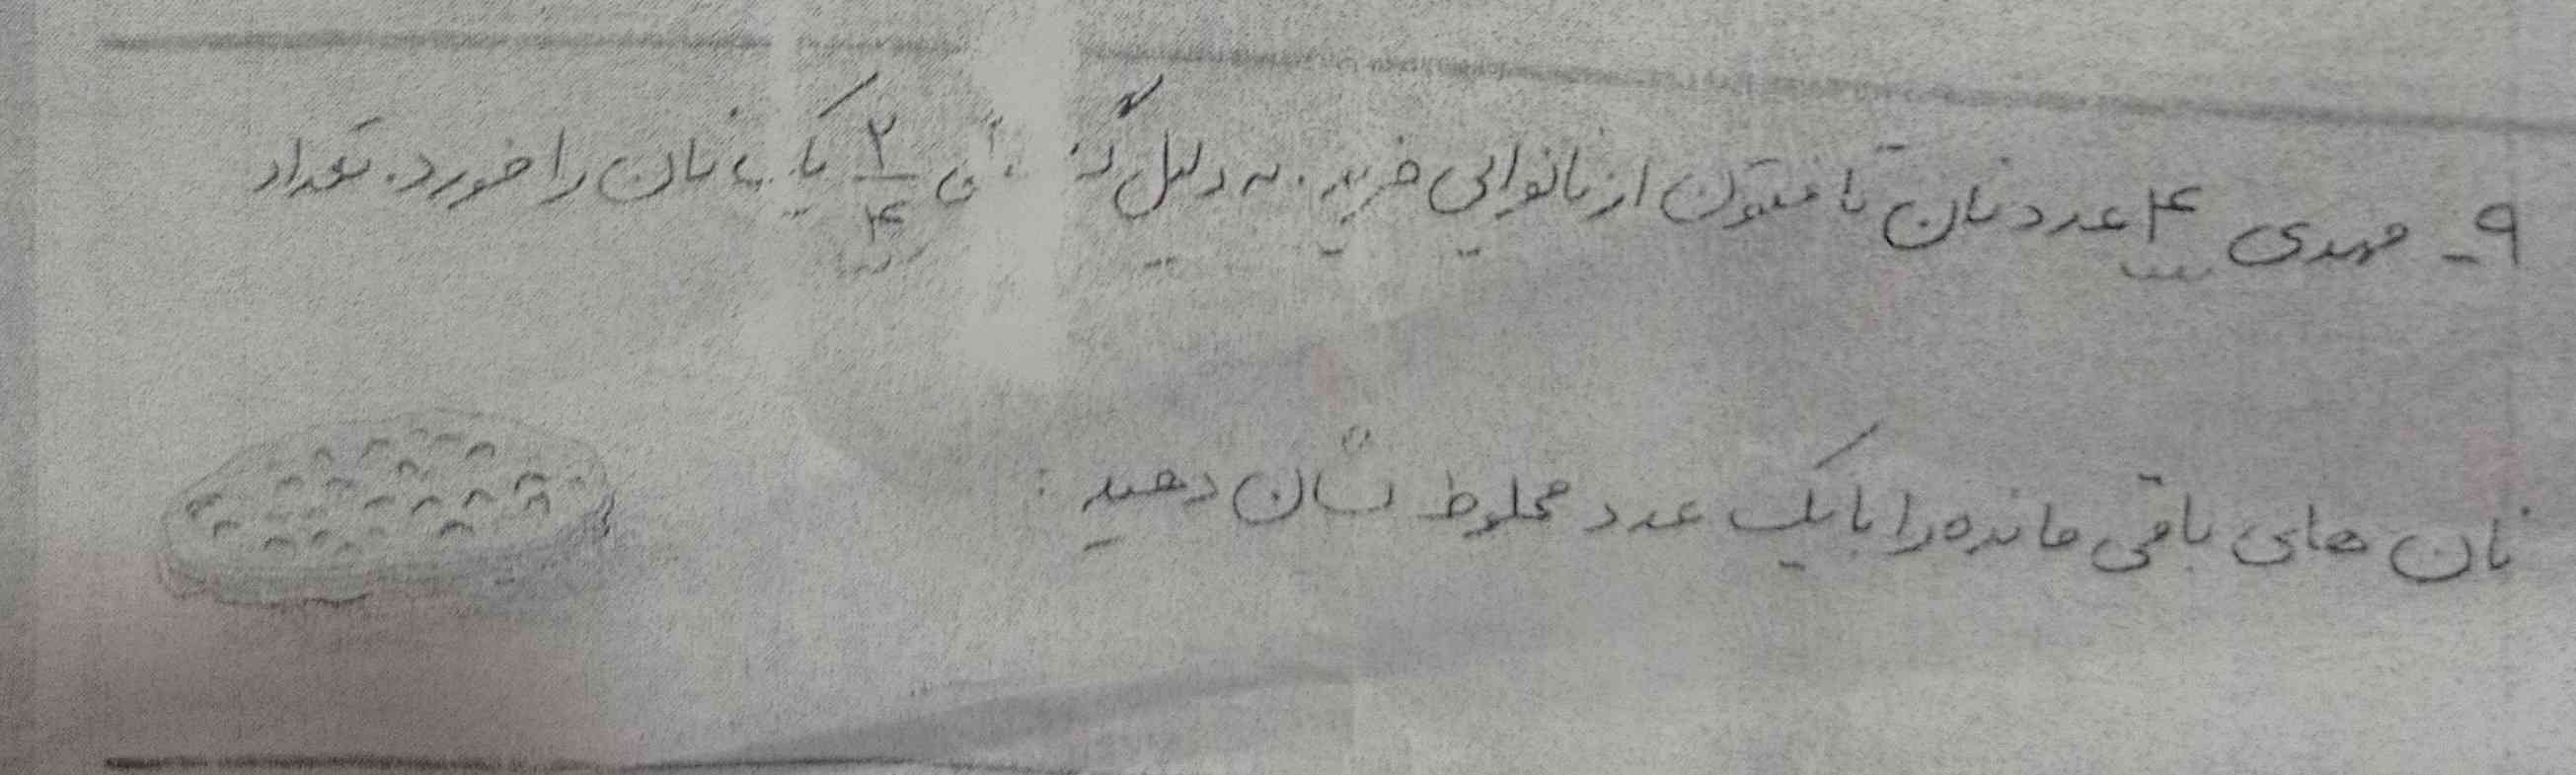 ۹- مهدی ۴ عدد نان تافتون از نانوایی خرید. به دلیل ۲/۴ یک نان را خورد. تعداد
نان های باقی مانده را با یک عدد مخلوط نشان دهید :